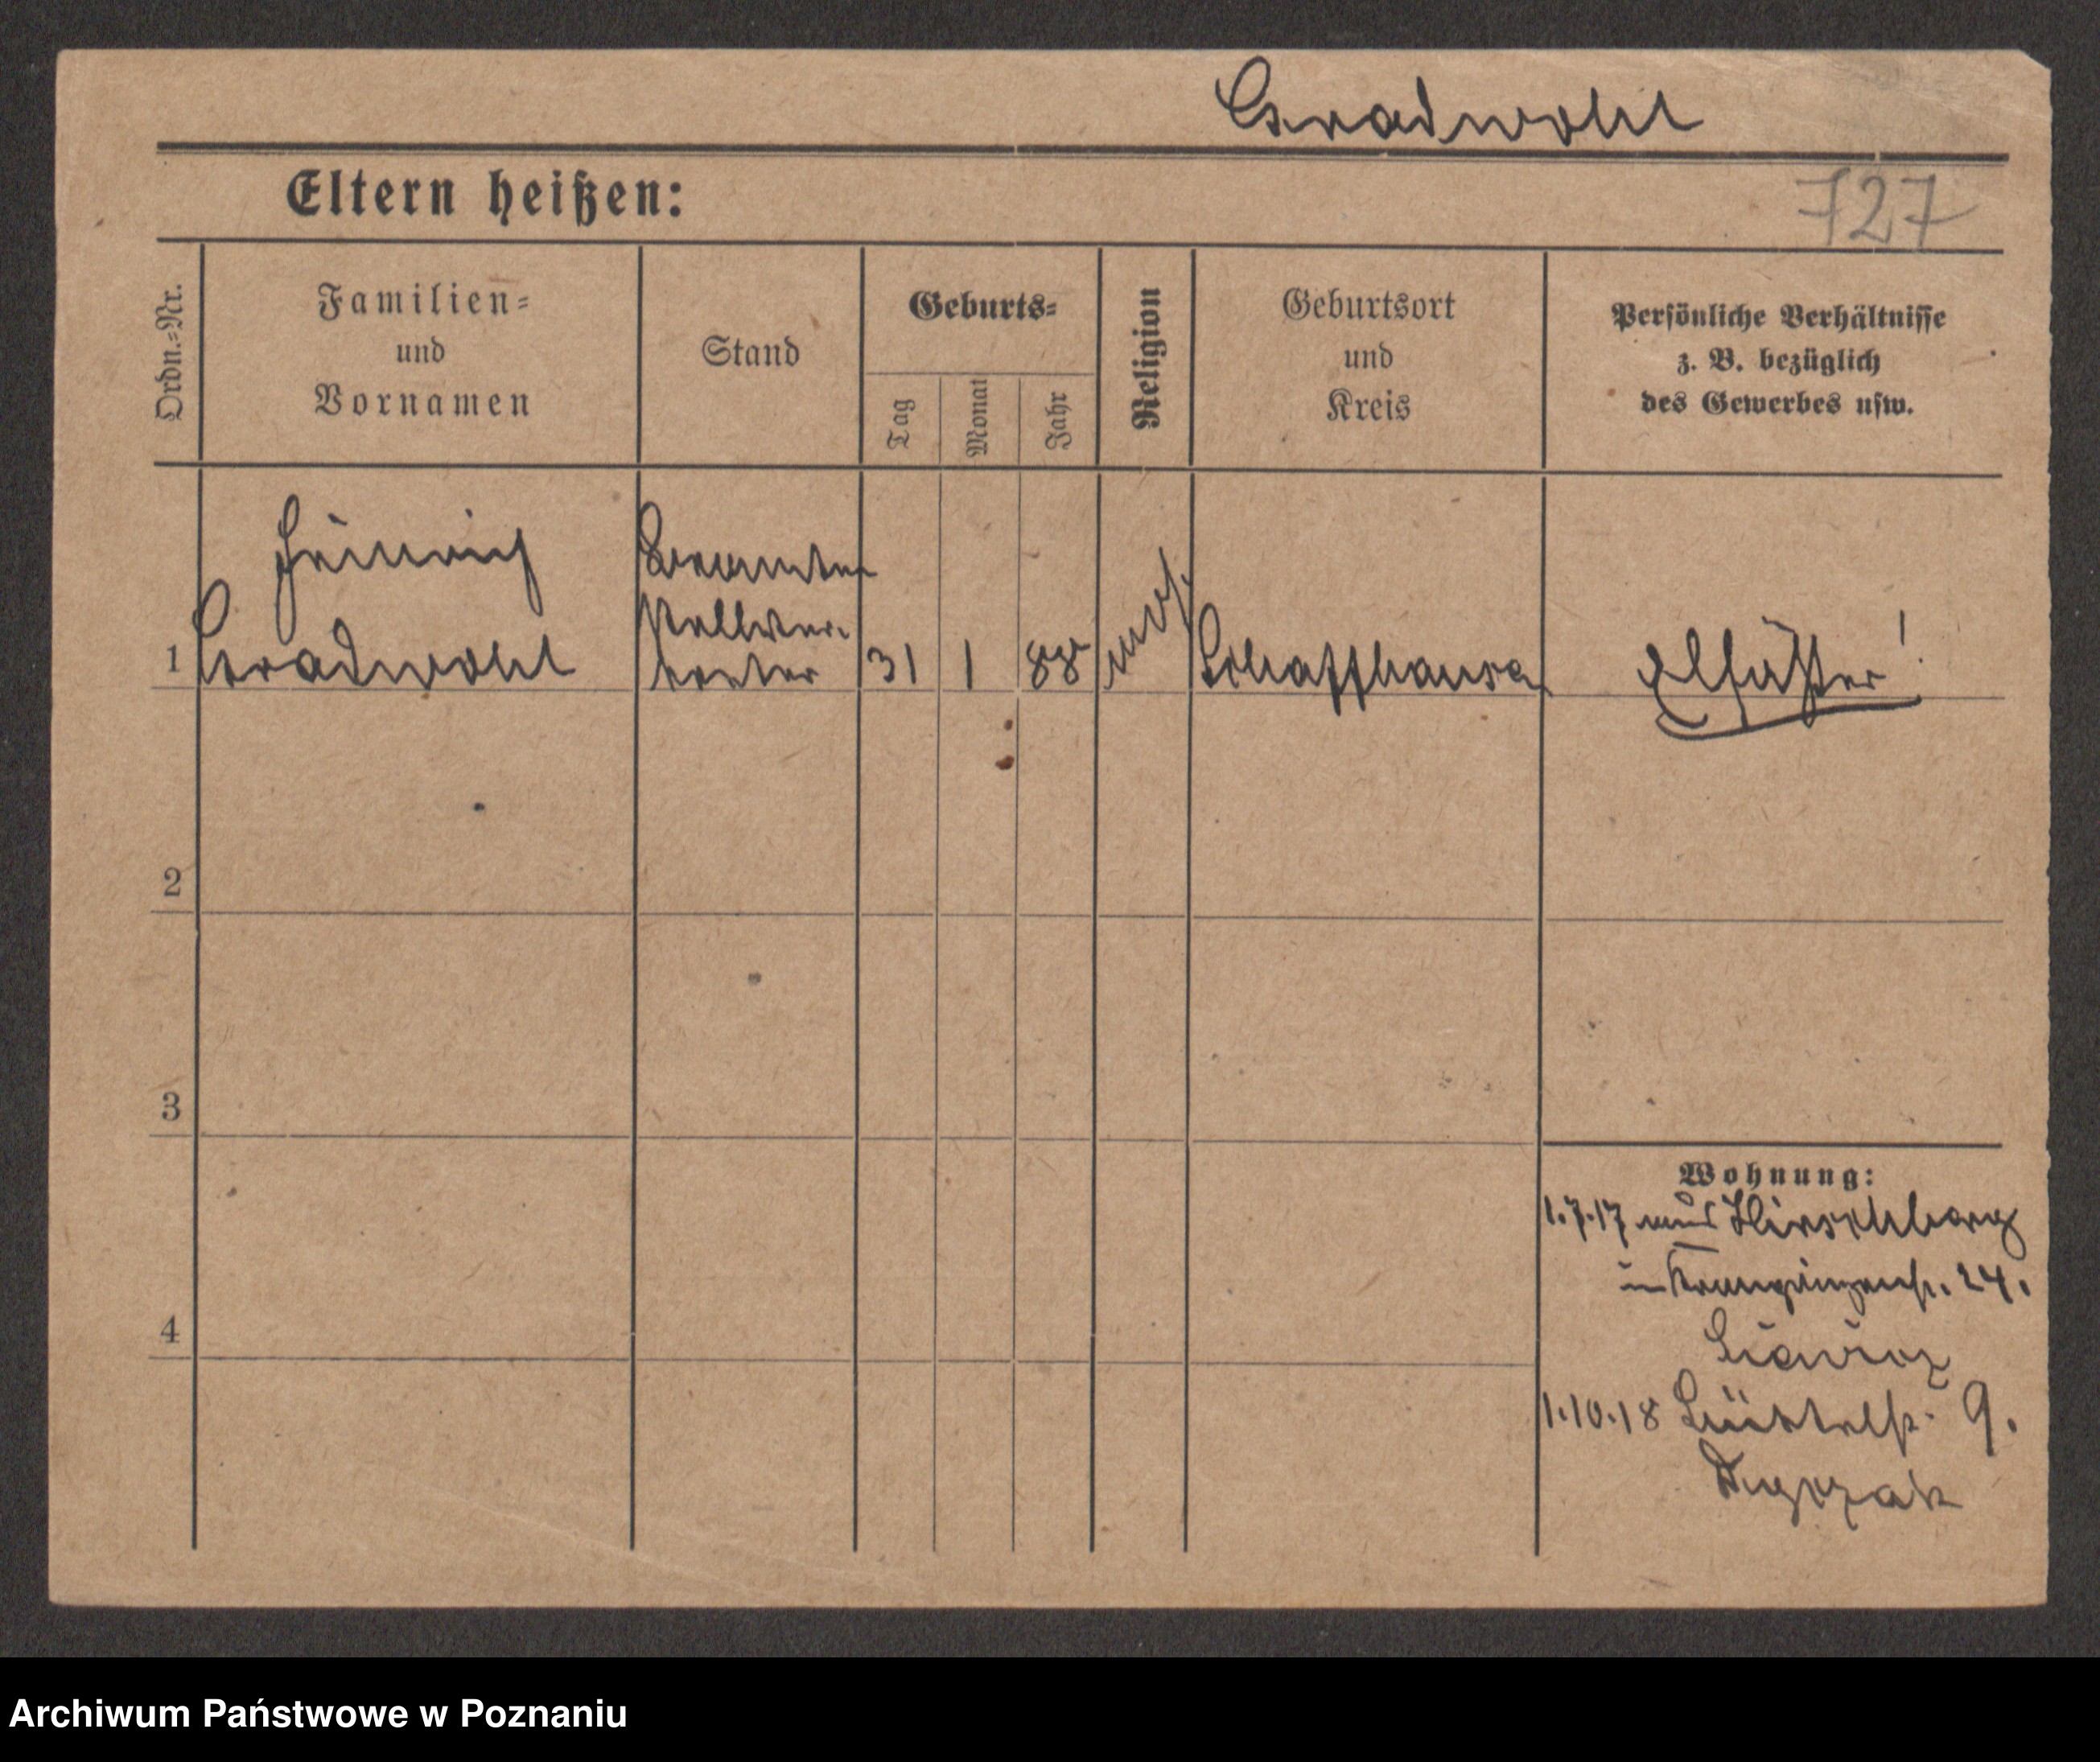 Gradwohl
Eltern heißen:
727
Ordn.-Nr.
Familien-
und
Vornamen
Stand
Geburts-
Tag
Monat
Jahr
Religion
Geburtsort
und
Kreis
Persönliche Verhältnisse
z. B. bezüglich
des Gewerbes usw.
1
Heinrich
Gradwohl
Beamten
Stellver.
treter
31
1
88
Schaffhausen
Elsäßer!
2
3
4
Wohnung:
1.7.17 aus Hirschberg
in Kronprinzenstr. 24.
1.10.18 9.
Archiwum Państwowe w Poznaniu